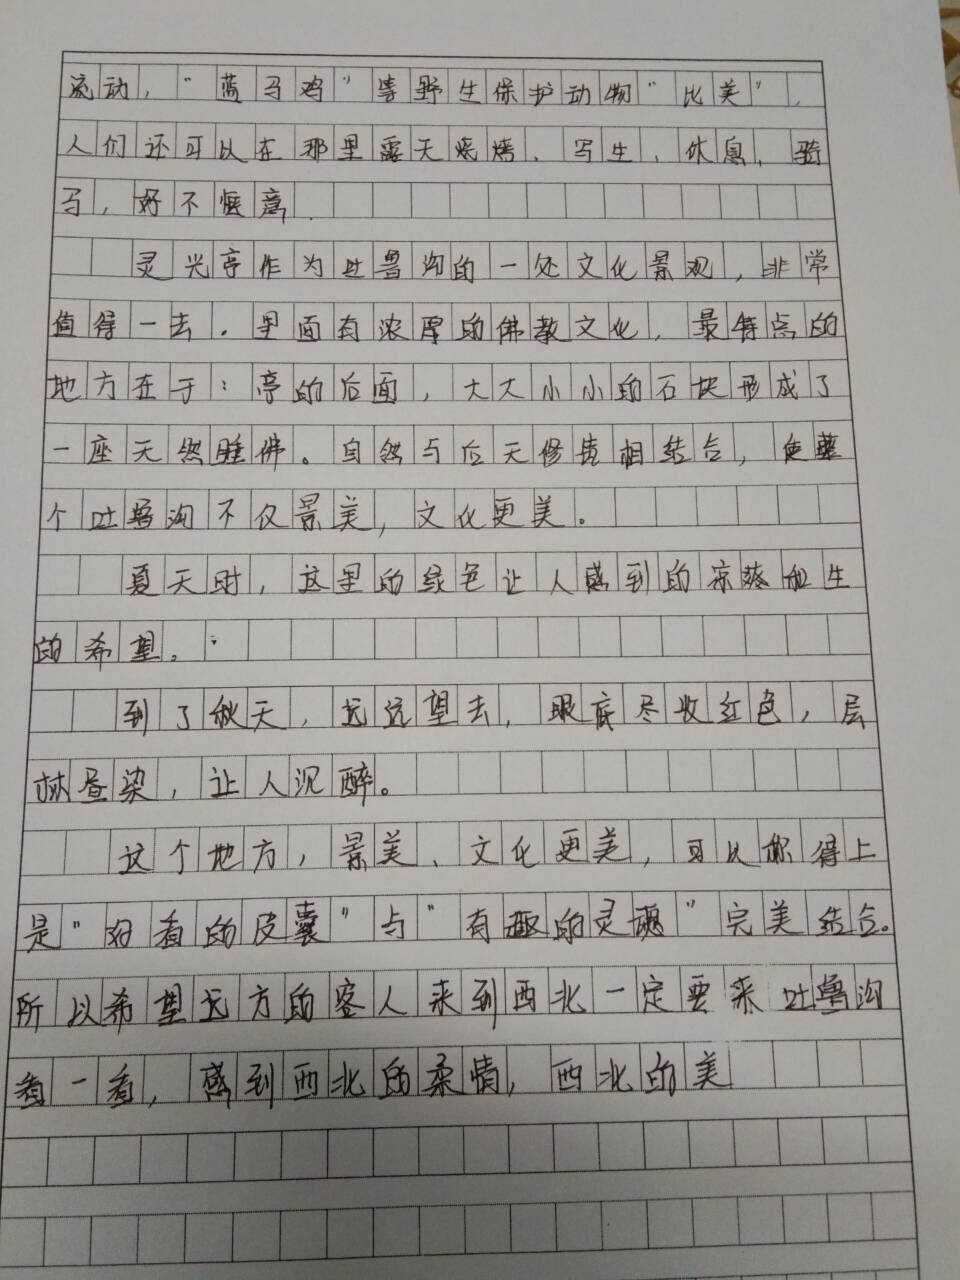 流动，“蓝马鸡”等野生保护动物“比美”，
人们还可以在那里露天烧烤、写生、休息、骑
马，好不惬意．
灵光亭作为吐鲁沟的一处文化景观，非常
值得一去．里面有浓厚的佛教文化．最特点的
地方在于：亭的后面，大大小小的石块形成了
一座天然睡佛。自然与后天修葺相结合，使整
个吐鲁沟不仅景美，文化更美。
夏天时，这里的绿色让人感到的凉爽和生
的希望。
到了秋天，远远望去，眼底尽收红色，层
林昼染，让人沉醉。
这个地方，景美、文化更美，可以称得上
是“好看的皮囊”与“有趣的灵魂”完美结合。
所以希望远方的客人来到西北一定要来吐鲁沟
看一看，感到西北的柔情，西北的美